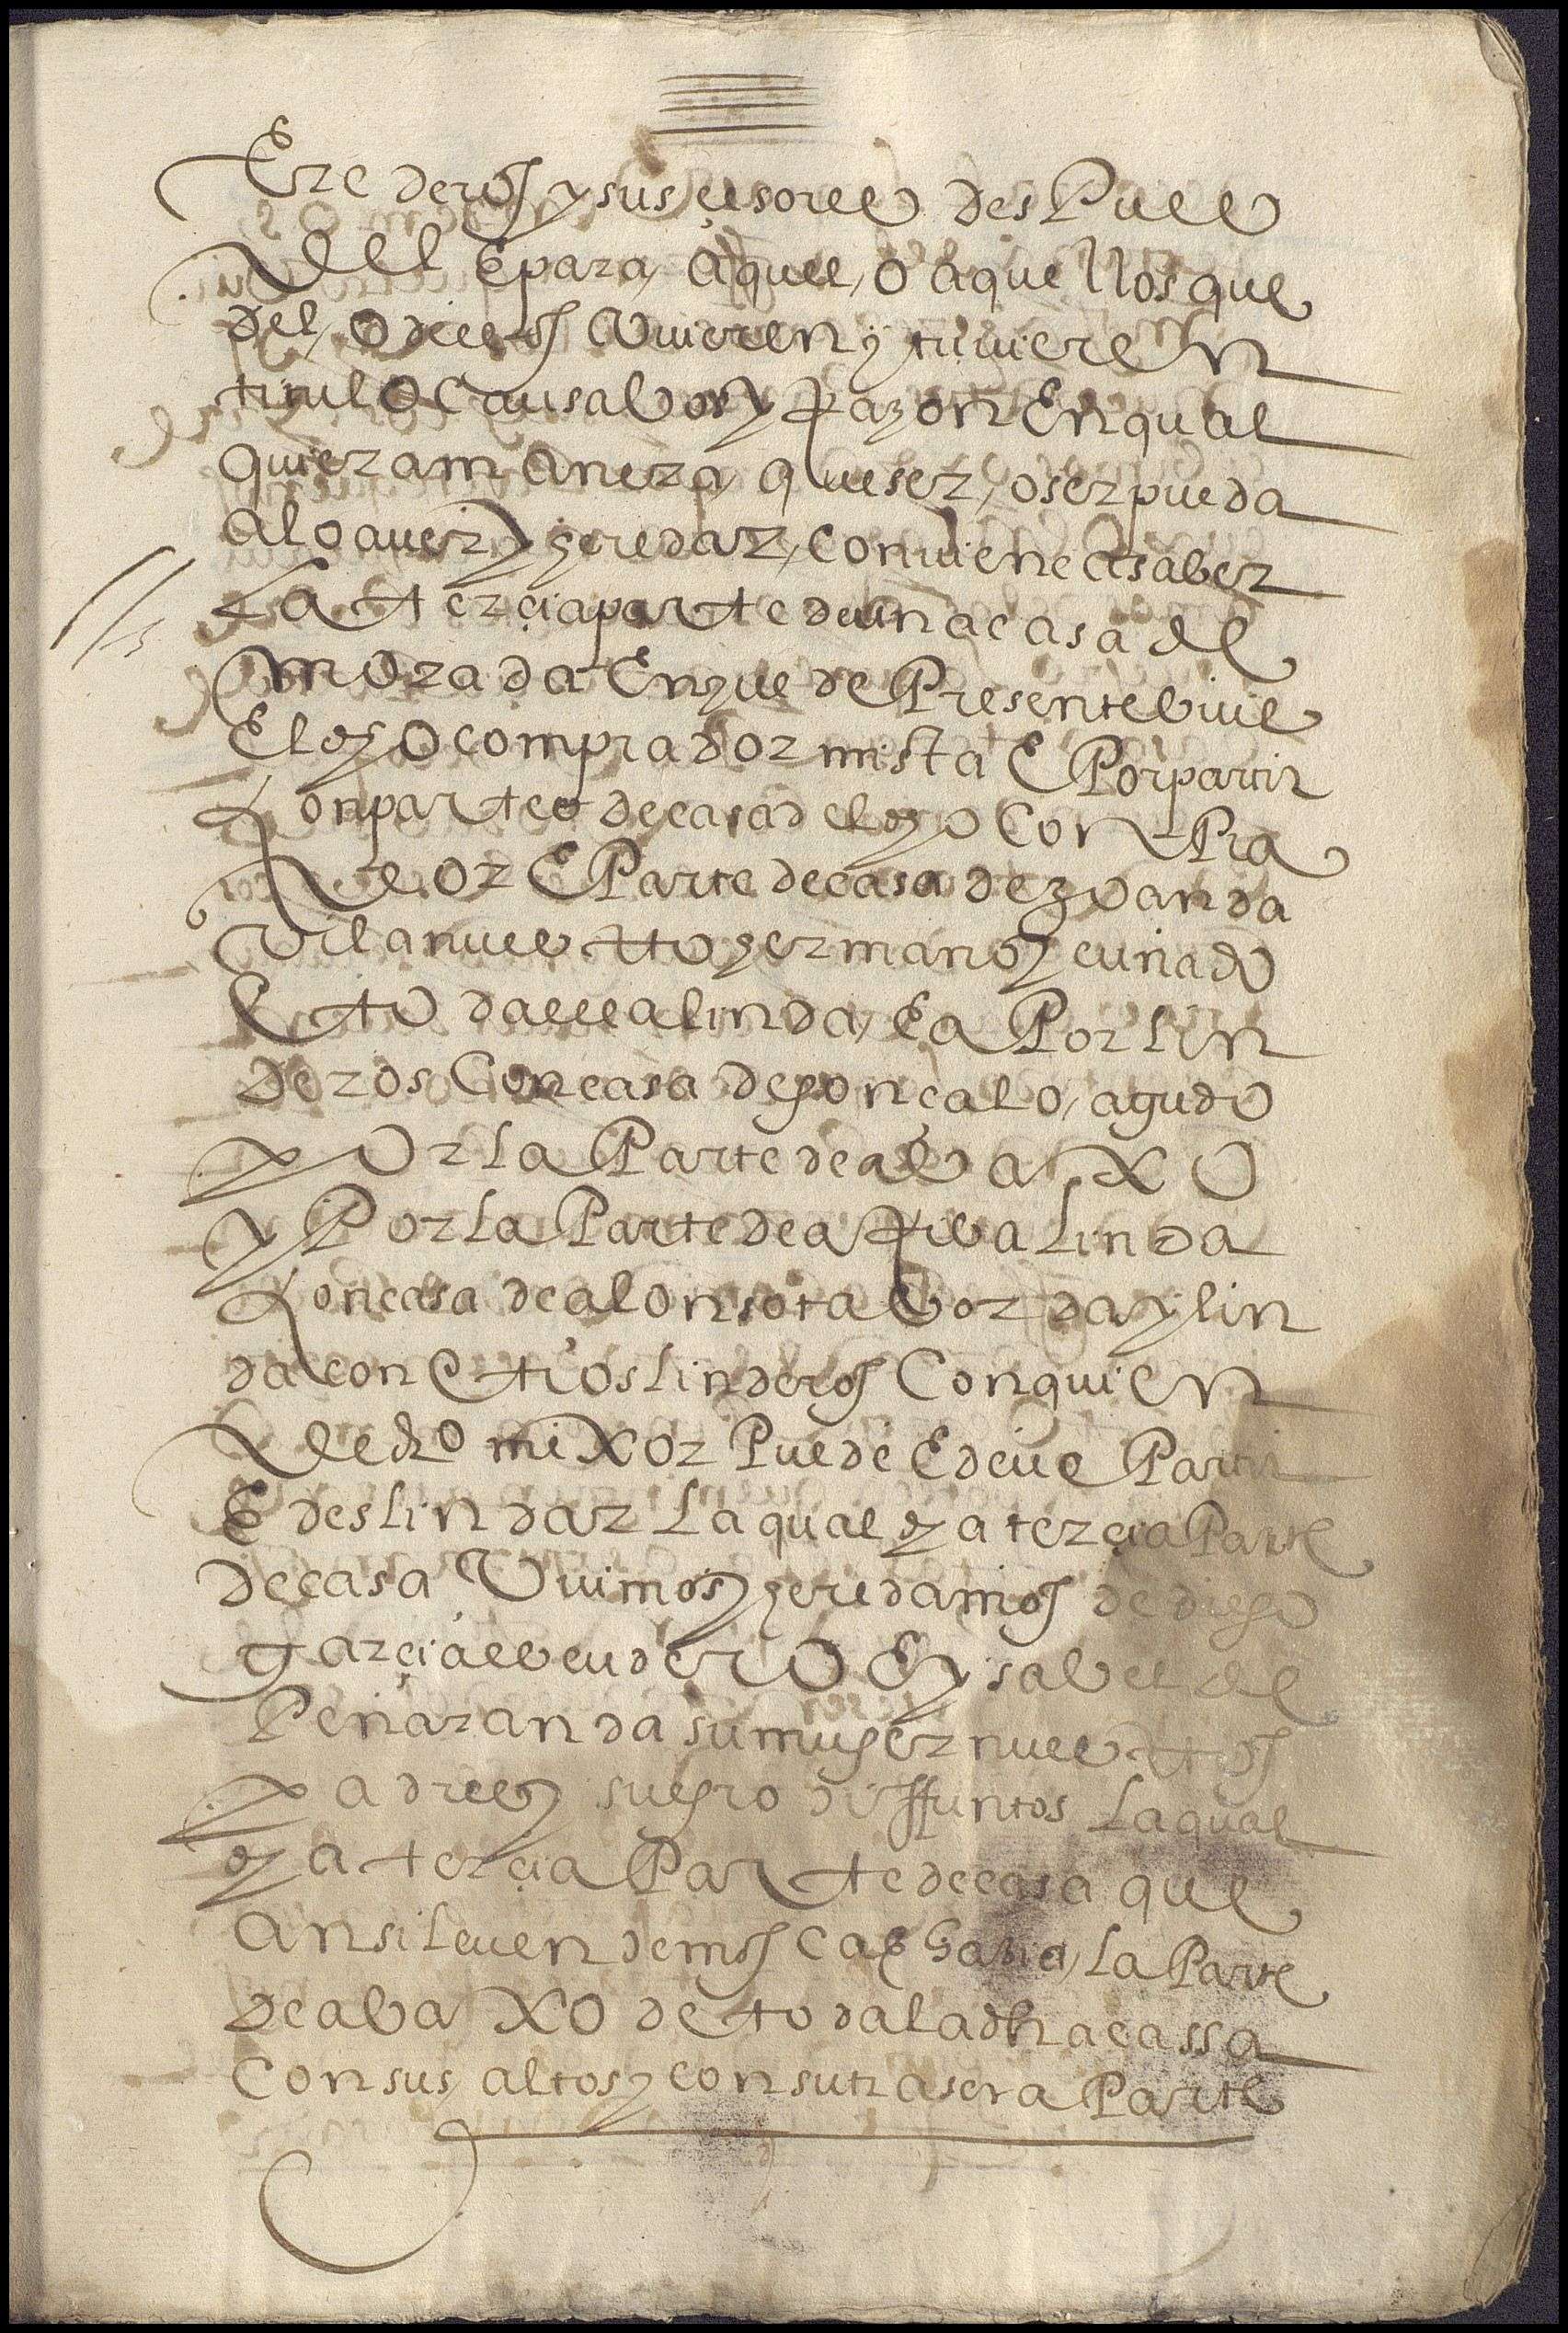 Erederos y susçesores despues
del E para aquel, o aquellos que
del, o dellos Uvieren y tuvieren
titulo causa bos y Razon En qual
quiera manera, que ser, o ser pueda
a lo aver y heredar, conviene a saber
La terçia parte de una casa de
morada En que de Presente bive
El dho comprador mista E Por partir
Con partes de casa del dho Conpra
dor E Parte de casa de Juan da
vila nuestro hermano y cuñado
E toda ella linda, Ea Por lin
deros Con casa de gonçalo, agudo
Por La Parte de abaxo
y Por La Parte de aRiba Linda
Con casa de alonso taborda y lin
da con otros linderos Con quien
de dro mixor Puede E deve Partir
E deslindar La qual dha terçia Parte
de casa Uvimos y heredamos de diego
garçia el bendero E ysabel de
Peñaranda su muger nuestros
Padres y suegro diffuntos La qual
dha terçia Parte de casa que
ansi le vendemos cae hazia, La Parte
de abaxo de toda la dha cassa
Con sus, altos y con su trasera Parte